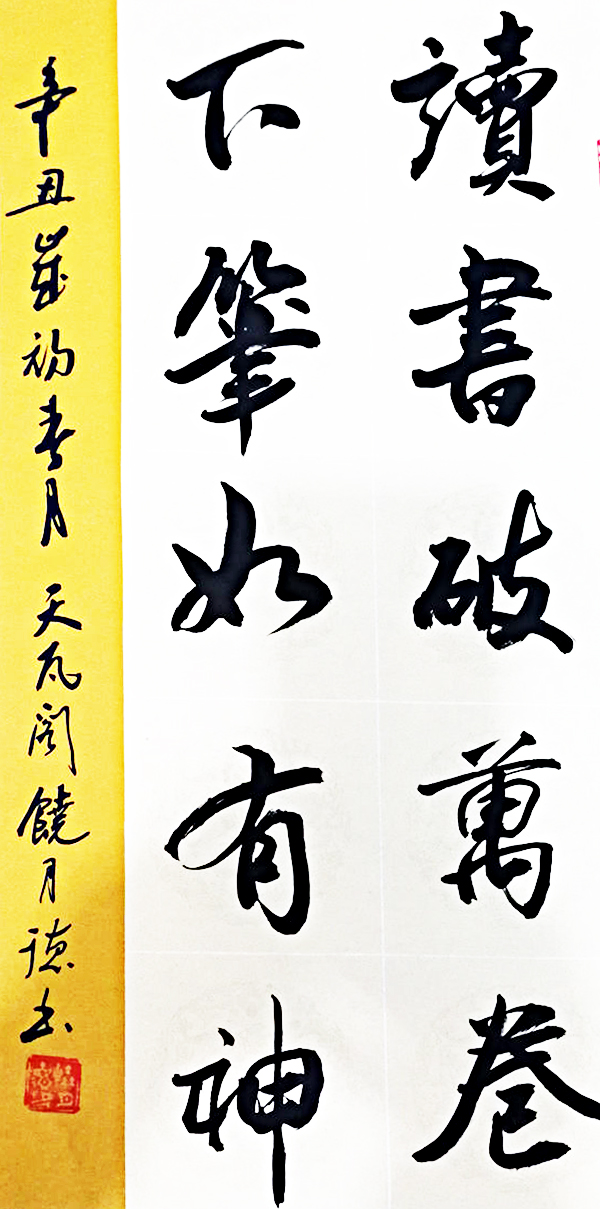 讀書破萬卷
下筆如有神
辛丑歲初春月 天瓦閣饒月德书